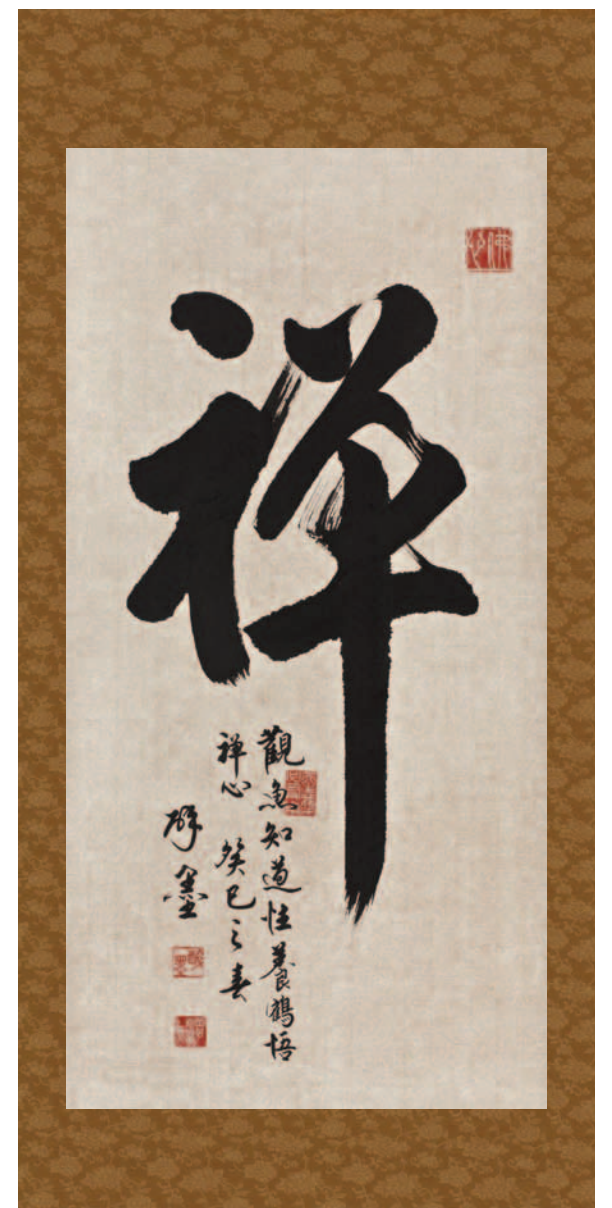 佛心
禅
觀魚知道性養鶴悟
禅心 癸巳之春
墨